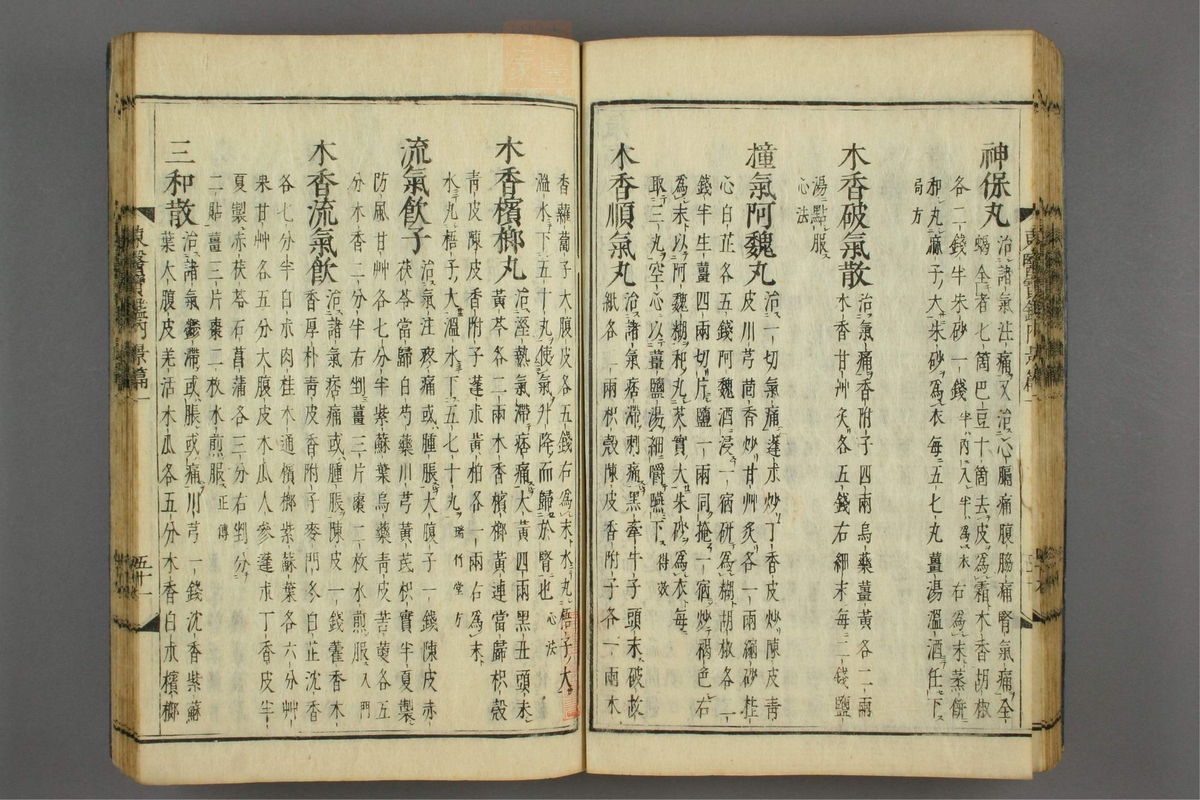 神保丸治諸氣注痛又治心膈痛腹脇痛腎氣痛全
蝎全者七箇巴豆十箇去皮爲霜木香胡椒
各二錢半朱砂一錢半內入半爲衣右爲末蒸餠
和丸麻子大朱砂爲衣每五七丸薑湯溫酒任下
局方
木香破氣散治氣痛香附子四兩烏藥薑黃各二兩
木香甘艸灸各五錢右細末每二錢鹽
湯點服
心法
撞氣阿魏丸治一切氣痛蓬朮炒丁香皮炒陳皮靑
皮川芎茴香炒甘艸炙各一兩縮砂桂
心白芷各五錢阿魏酒浸一宿硏爲糊胡椒各一
錢半生薑四兩切片鹽一兩同掩一宿炒褐色右
爲末以阿魏糊和丸芡實大朱砂爲衣每
取三丸空心以薑鹽湯細嚼嚥下得效
木香順氣丸治諸氣痞滯刺痛黑牽牛子頭末破故
紙各二兩枳殼陳皮香附子各一兩木
香蘿蔔子大腹皮各五錢右爲末水丸梧子大
溫水下五十丸使氣升降而歸於腎也心法
木香檳榔丸治溼熱氣滯痞痛大黃四兩黑丑頭末
黃芩各二兩木香檳榔黃連當歸枳殼
靑皮陳皮香附子蓬朮黃柏各一兩右爲末
水丸梧子大溫水下五七十丸瑞竹堂方
流氣飮子治氣注疼痛或腫脹大腹子一錢陳皮赤
茯苓當歸白芍藥川芎黃芪枳實半夏製
防風甘艸各七分半紫蘇葉烏藥靑皮苦莄各五
分木香二分半右剉薑三片棗二枚水煎服入門
木香流氣飮治諸氣痞痛或腫脹陳皮一錢藿香木
香厚朴靑皮香附子麥門冬白芷沈香
各七分半白朮肉桂木通檳榔紫蘇葉各六分艸
果甘艸各五分大腹皮木瓜人參蓬朮丁香皮半
夏製赤茯苓石菖蒲各三分右剉分
二貼薑三片棗二枚水煎服正傳
三和散治諸氣鬱滯或脹或痛川芎一錢沈香紫蘇
葉大腹皮羌活木瓜各五分木香白朮檳榔
東醫寶鑑內景篇一
五十一